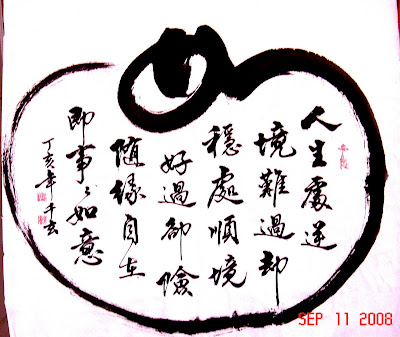 人生處逆
境難過却
穩處順境
好過卻險
隨緣自在
即事々如意
丁亥年
SEP 11 2008